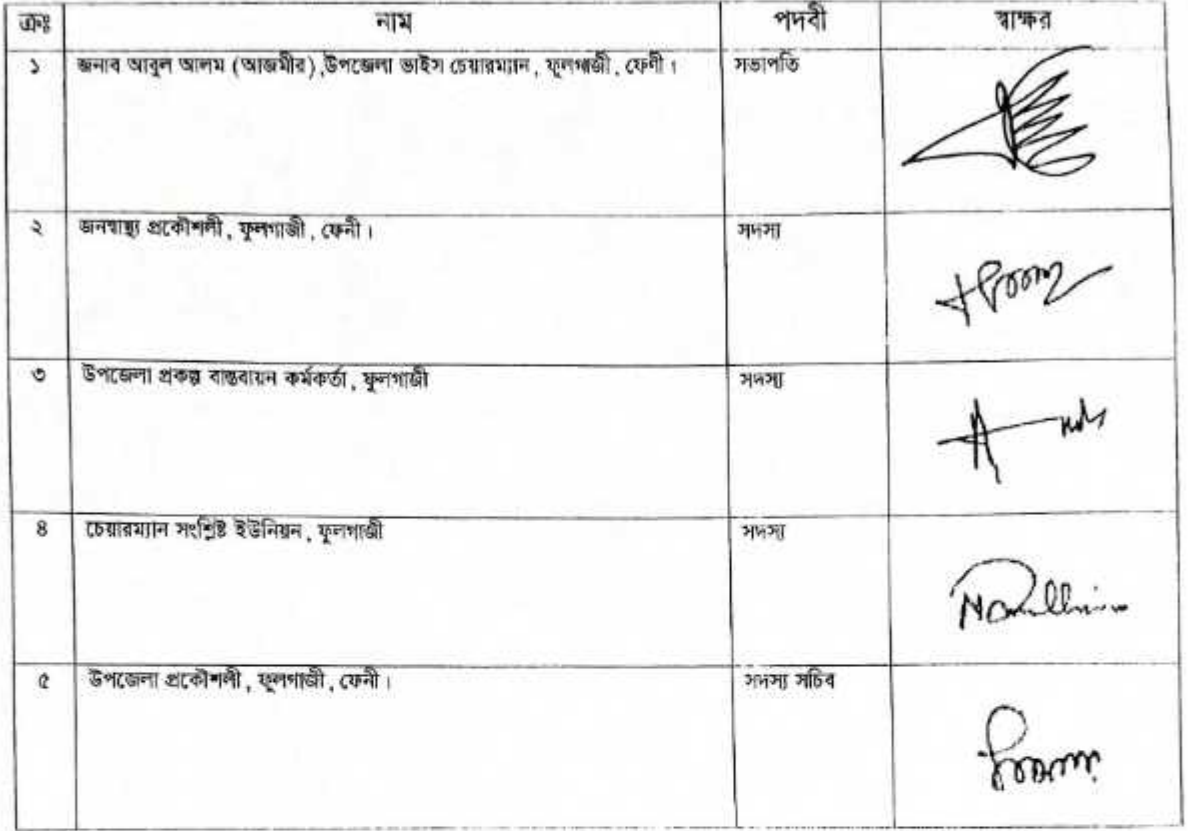 ক্রঃ নাম পদবী স্বাক্ষর
১ জনাব আবুল আলম (আজমীর),উপজেলা ভাইস চেয়ারম্যান, ফুলগাজী, ফেণী।  সভাপতি
২ জনস্বাস্থ্য প্রকৌশলী, ফুলগাজী, ফেনী। সদস্য
৩ উপজেলা প্রকল্প বাস্তবায়ন কর্মকর্তা, ফুলগাজী সদস্য
৪ চেয়ারম্যান সংশ্লিষ্ট ইউনিয়ন, ফুলগাজী সদস্য
৫ উপজেলা প্রকৌশলী, ফুলগাজী, ফেনী। সদস্য সচিব